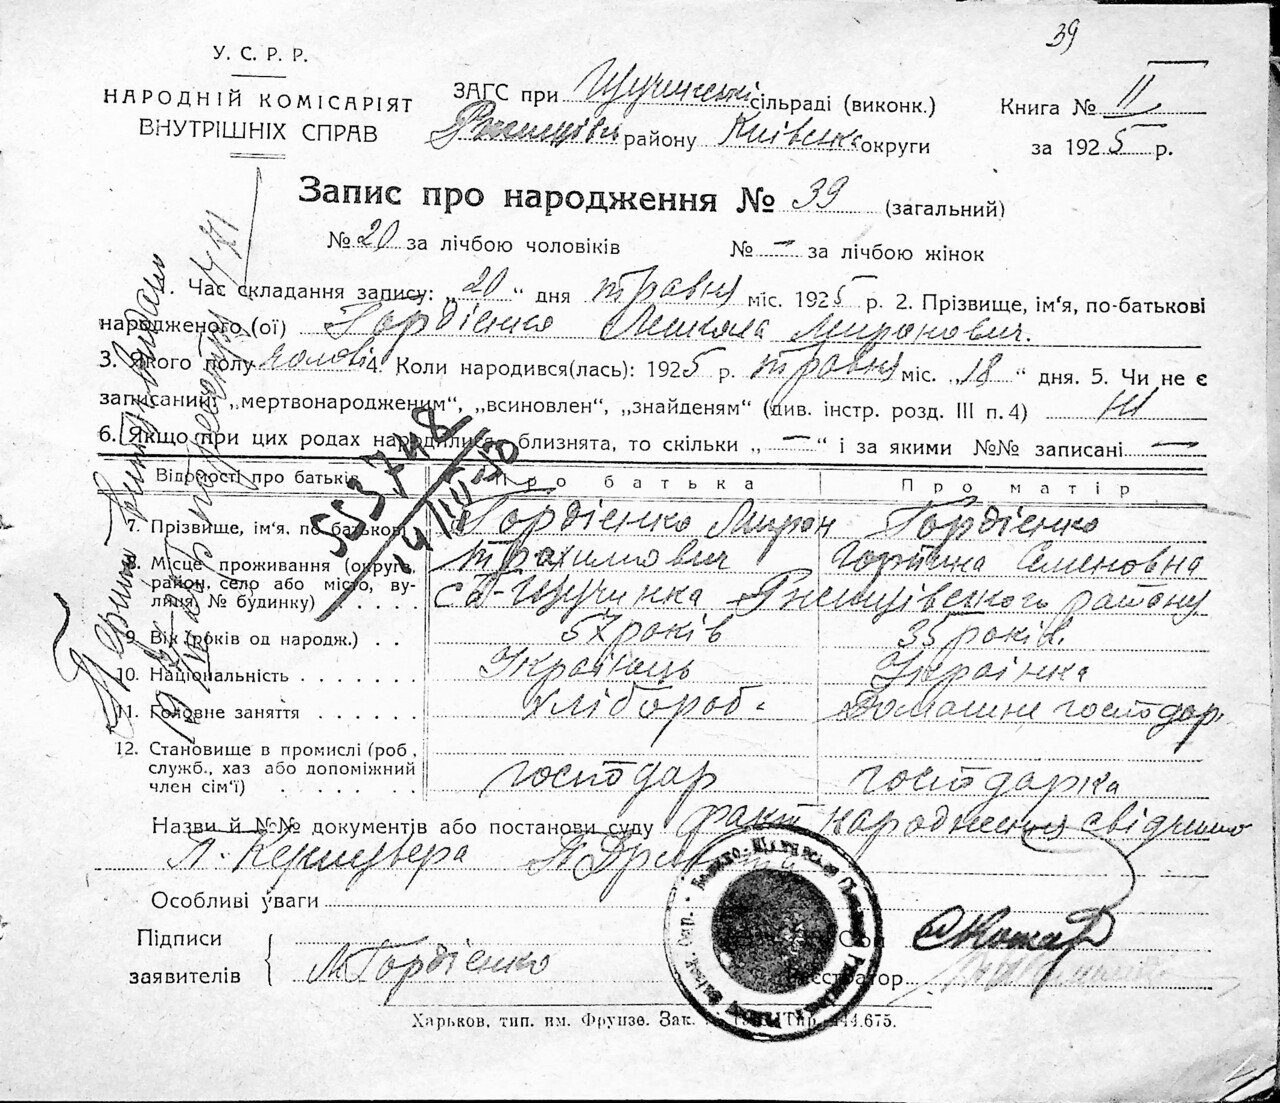 39
У. С. Р. Р.
НАРОДНІЙ КОМІСАРІЯТ
ВНУТРІШНІХ СПРАВ
ЗАГС при Щучинські сільраді (виконк.)
району Київсько округи
Книга № II
за 1925 р.
Запис про народження № 39 (загальний)
№ 20 за лічбою чоловіків № — за лічбою жінок
1. Час складання запису: „20“ дня травня міс. 1925 р. 2. Прізвище, ім'я, по-батькові
народженого (ої) Гордієнко Микола Миронович.
3. Якого полу чолові 4. Коли народився(лась): 1925 р. травня міс. „18“ дня. 5. Чи не є
записаний: „мертвонародженим“, „всиновлен“, „знайденям“ (див. інстр. розд. III п. 4) ні
6. Якщо при цих родах народилися близнята, то скільки „—“ і за якими №№ записані —
Відомості про батьків Про батька Про матір
7. Прізвище, ім'я, по-батькові Гордієнко Мирон Гордієнко
Трохимович Горпина Семеновна
8. Місце проживання (округа, район, село або місто, ву-
лиця, № будинку) с. Щучинка Ржищівського району
9. Вік (років од народж.) . . 57 років 35 років.
10. Національність . . . . . . . Українець Українка
11. Головне заняття . . . . . . Хлібороб. Домашне господар.
12. Становище в промислі (роб.,
служб., хаз або допоміжний
член сім'ї) . . . . . . господар господарка
Назви й №№ документів або постанови суду факт народження свідчимо
Л. М.
Особливі уваги
Підписи
заявителів М. Гордієнко
Реєстратор
Харьков, тип. им. Фрунзе. Зак.
553748
14/III 50